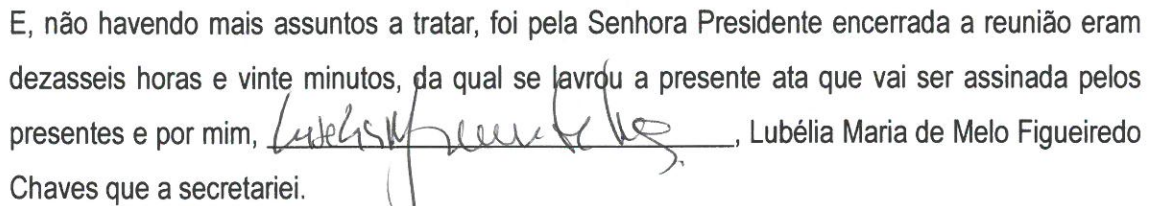 E, não havendo mais assuntos a tratar, foi pela Senhora Presidente encerrada a reunião eram
dezasseis horas e vinte minutos, da qual se lavrou a presente ata que vai ser assinada pelos
presentes e por mim, , Lubélia Maria de Melo Figueiredo
Chaves que a secretariei.